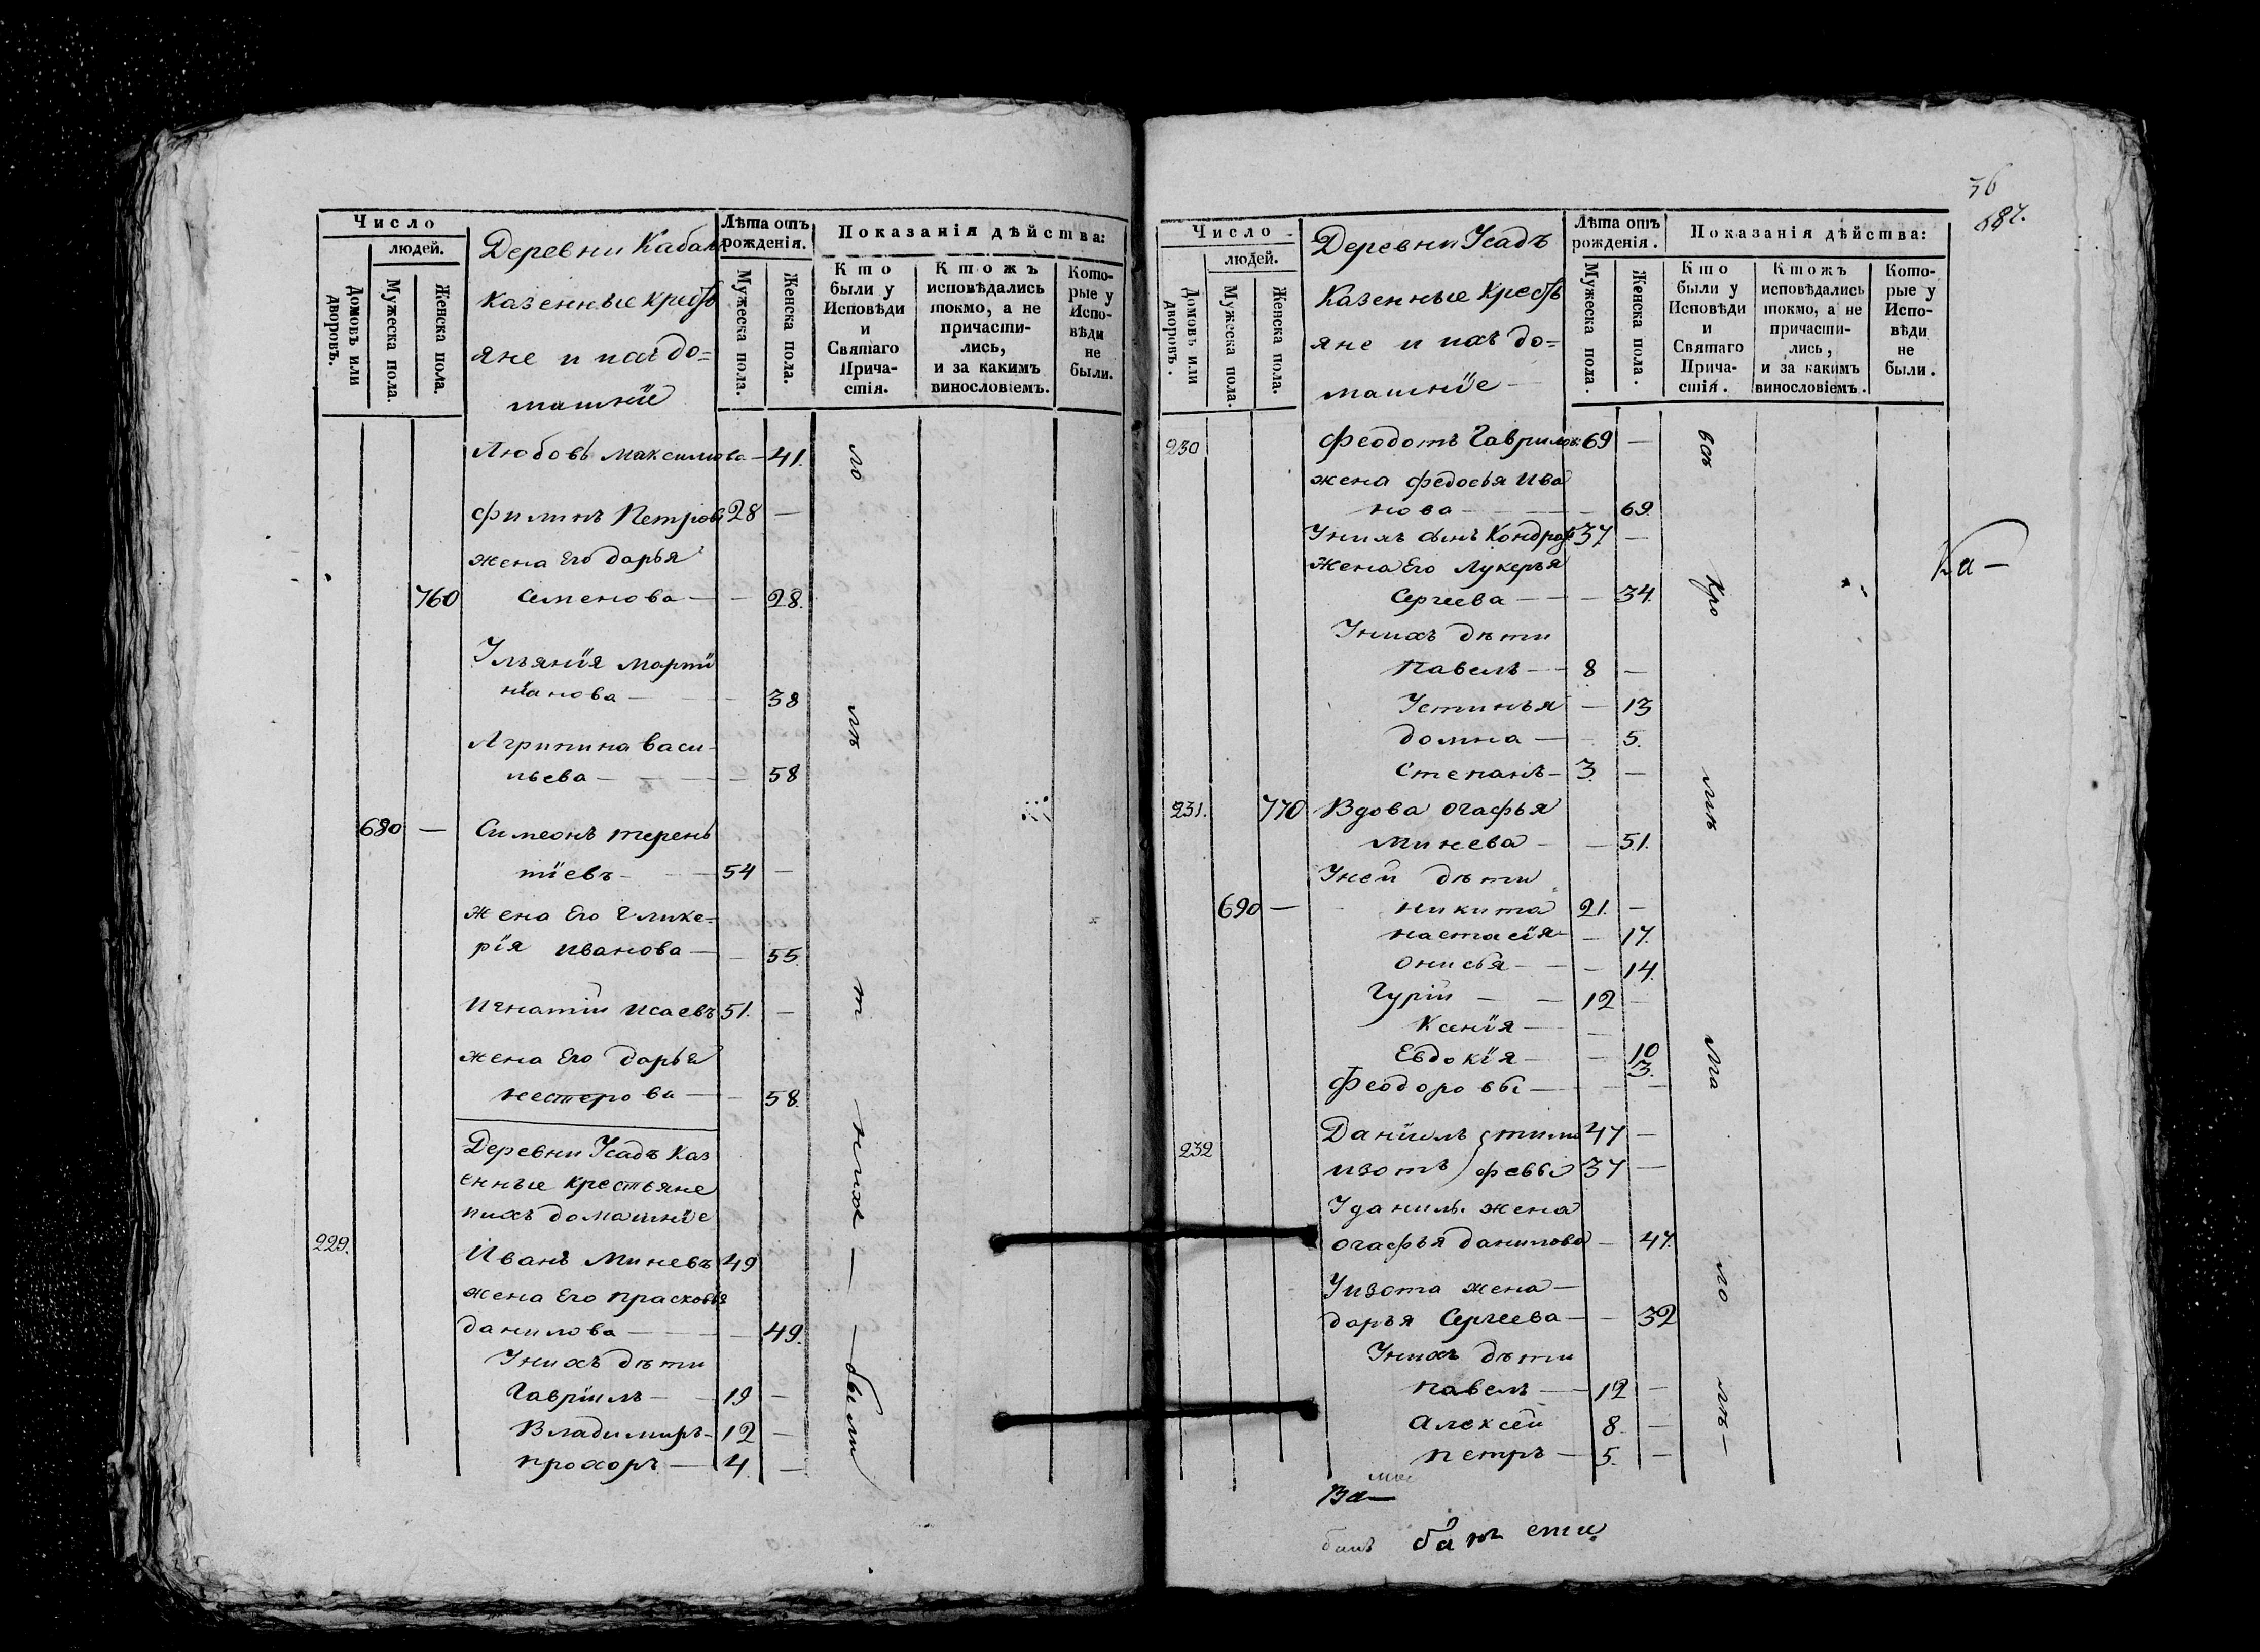 Число
людей.
Домовъ или дворовъ.
Мужеска пола.
Женска пола.
Деревни Кабан
казенные кресть
яне и ихъ до=
машнїе
Лѣта отъ рожденія.
Мужеска пола.
Женска пола.
Показанія дѣйства:
Кто были у Исповѣди и Святаго Причастія.
Ктожъ исповѣдались токмо, а не причастились, и за какимъ винословіемъ.
Которые у Исповѣди не были.
Любовь Максимова — 41.
Филипъ Петровъ 28 —
жена Его дарья
760 Семенова — — 28.
Ульянїя Марти
нїанова — — 38
Агрипина Васи-
льева — — — 58
680 — Симеонъ терень
тїевъ — — 54 —
Жена Его Глике-
рїя Иванова — — 55.
Игнатїй Исаевъ 51. —
жена Его Дарья
нестерова — — 58.
Деревни Усадъ Каз
енные крестьяне
и ихъ домашнїе
229. Иванъ Миневъ 49
жена Его Прасковья
данилова — — 49.
У нихъ дѣти
Гаврїилъ — 19 —
Владимиръ — 12 —
прохоръ — 4. —
ни хъ — — были
36
687.
Число
людей.
Домовъ или дворовъ.
Мужеска пола.
Женска пола.
Деревни Усадъ
Казенные Кресть
яне и ихъ до=
машнїе —
Лѣта отъ рожденія.
Мужеска пола.
Женска пола.
Показанія дѣйства:
Кто были у Исповѣди и Святаго Причастія.
Ктожъ исповѣдались токмо, а не причастились, и за какимъ винословіемъ.
Которые у Исповѣди не были.
230 Феодотъ Гаврилов. 69 —
жена федосья Ива
нова — — — 69.
У нихъ сынъ Кондрат 37 —
Жена Его Лукерья
Сергеева — — — 34.
У нихъ дѣти
Павелъ — — 8 —
Устинья — 13
домна — — 5.
Степанъ — 3. —
231. 770 Вдова Огафья
Минева — — 51.
У ней дѣти
690 — никита 21. —
настасїя — — 17.
Онисья — — — 14.
Гурїй — — 12 —
Ксенїя — —
Евдокїя — — 10
3.
Феодоровы — — —
232 Данїилъ тимо 47 —
изотъ феевы 37 —
У данил. жена
огафья данилова — 47.
У изота жена —
дарья Сергеева — — 32
У нихъ дѣти
павелъ — — 12 —
Алексей 8. —
петръ — 5. —